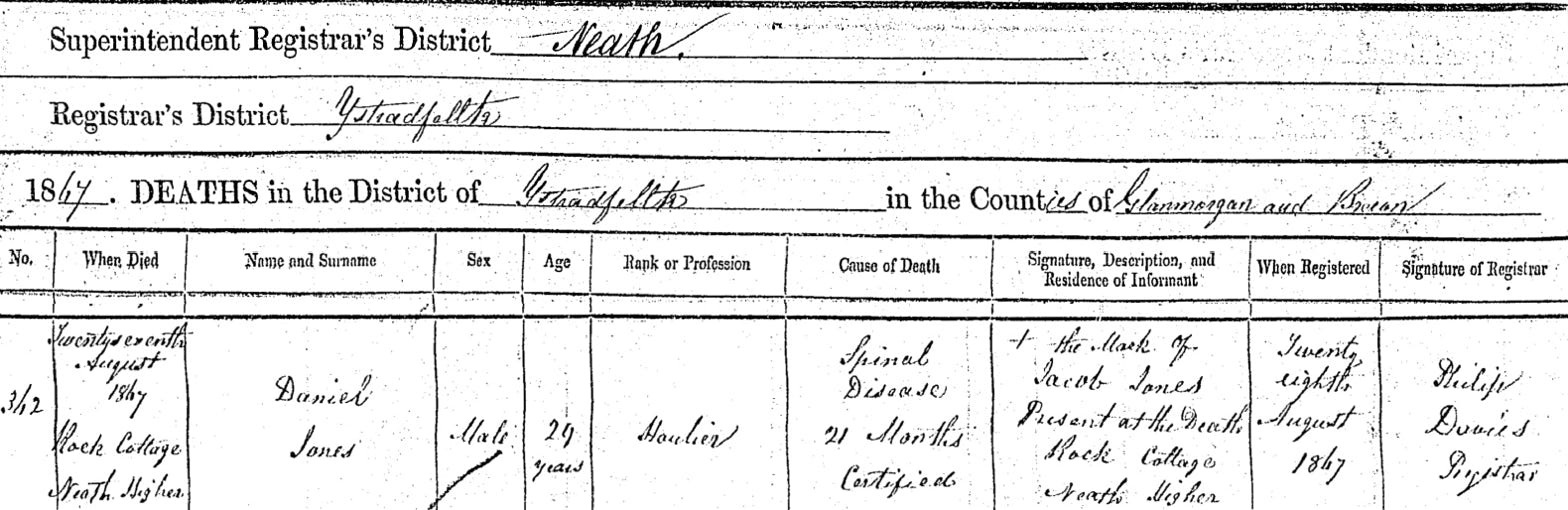 Superintendent Registrar's District Neath.
Registrar's District Ystradfellte
1867. DEATHS in the District of Ystradfellte in the Counties of Glanmorgan and Brecon
No. When Died Name and Surname Sex Age Rank or Profession Cause of Death Signature, Description, and Residence of Informant When Registered Signature of Registrar
342
Twenty seventh
August
1867
Rock Cottage
Neath Higher
Daniel
Jones
Male
29
years
Haulier
Spinal
Disease
21 Months
Certified
+ the Mark of
Jacob Jones
Present at the Death
Rock Cottage
Neath Higher
Twenty
eighth
August
1867
Philip
Davies
Registrar